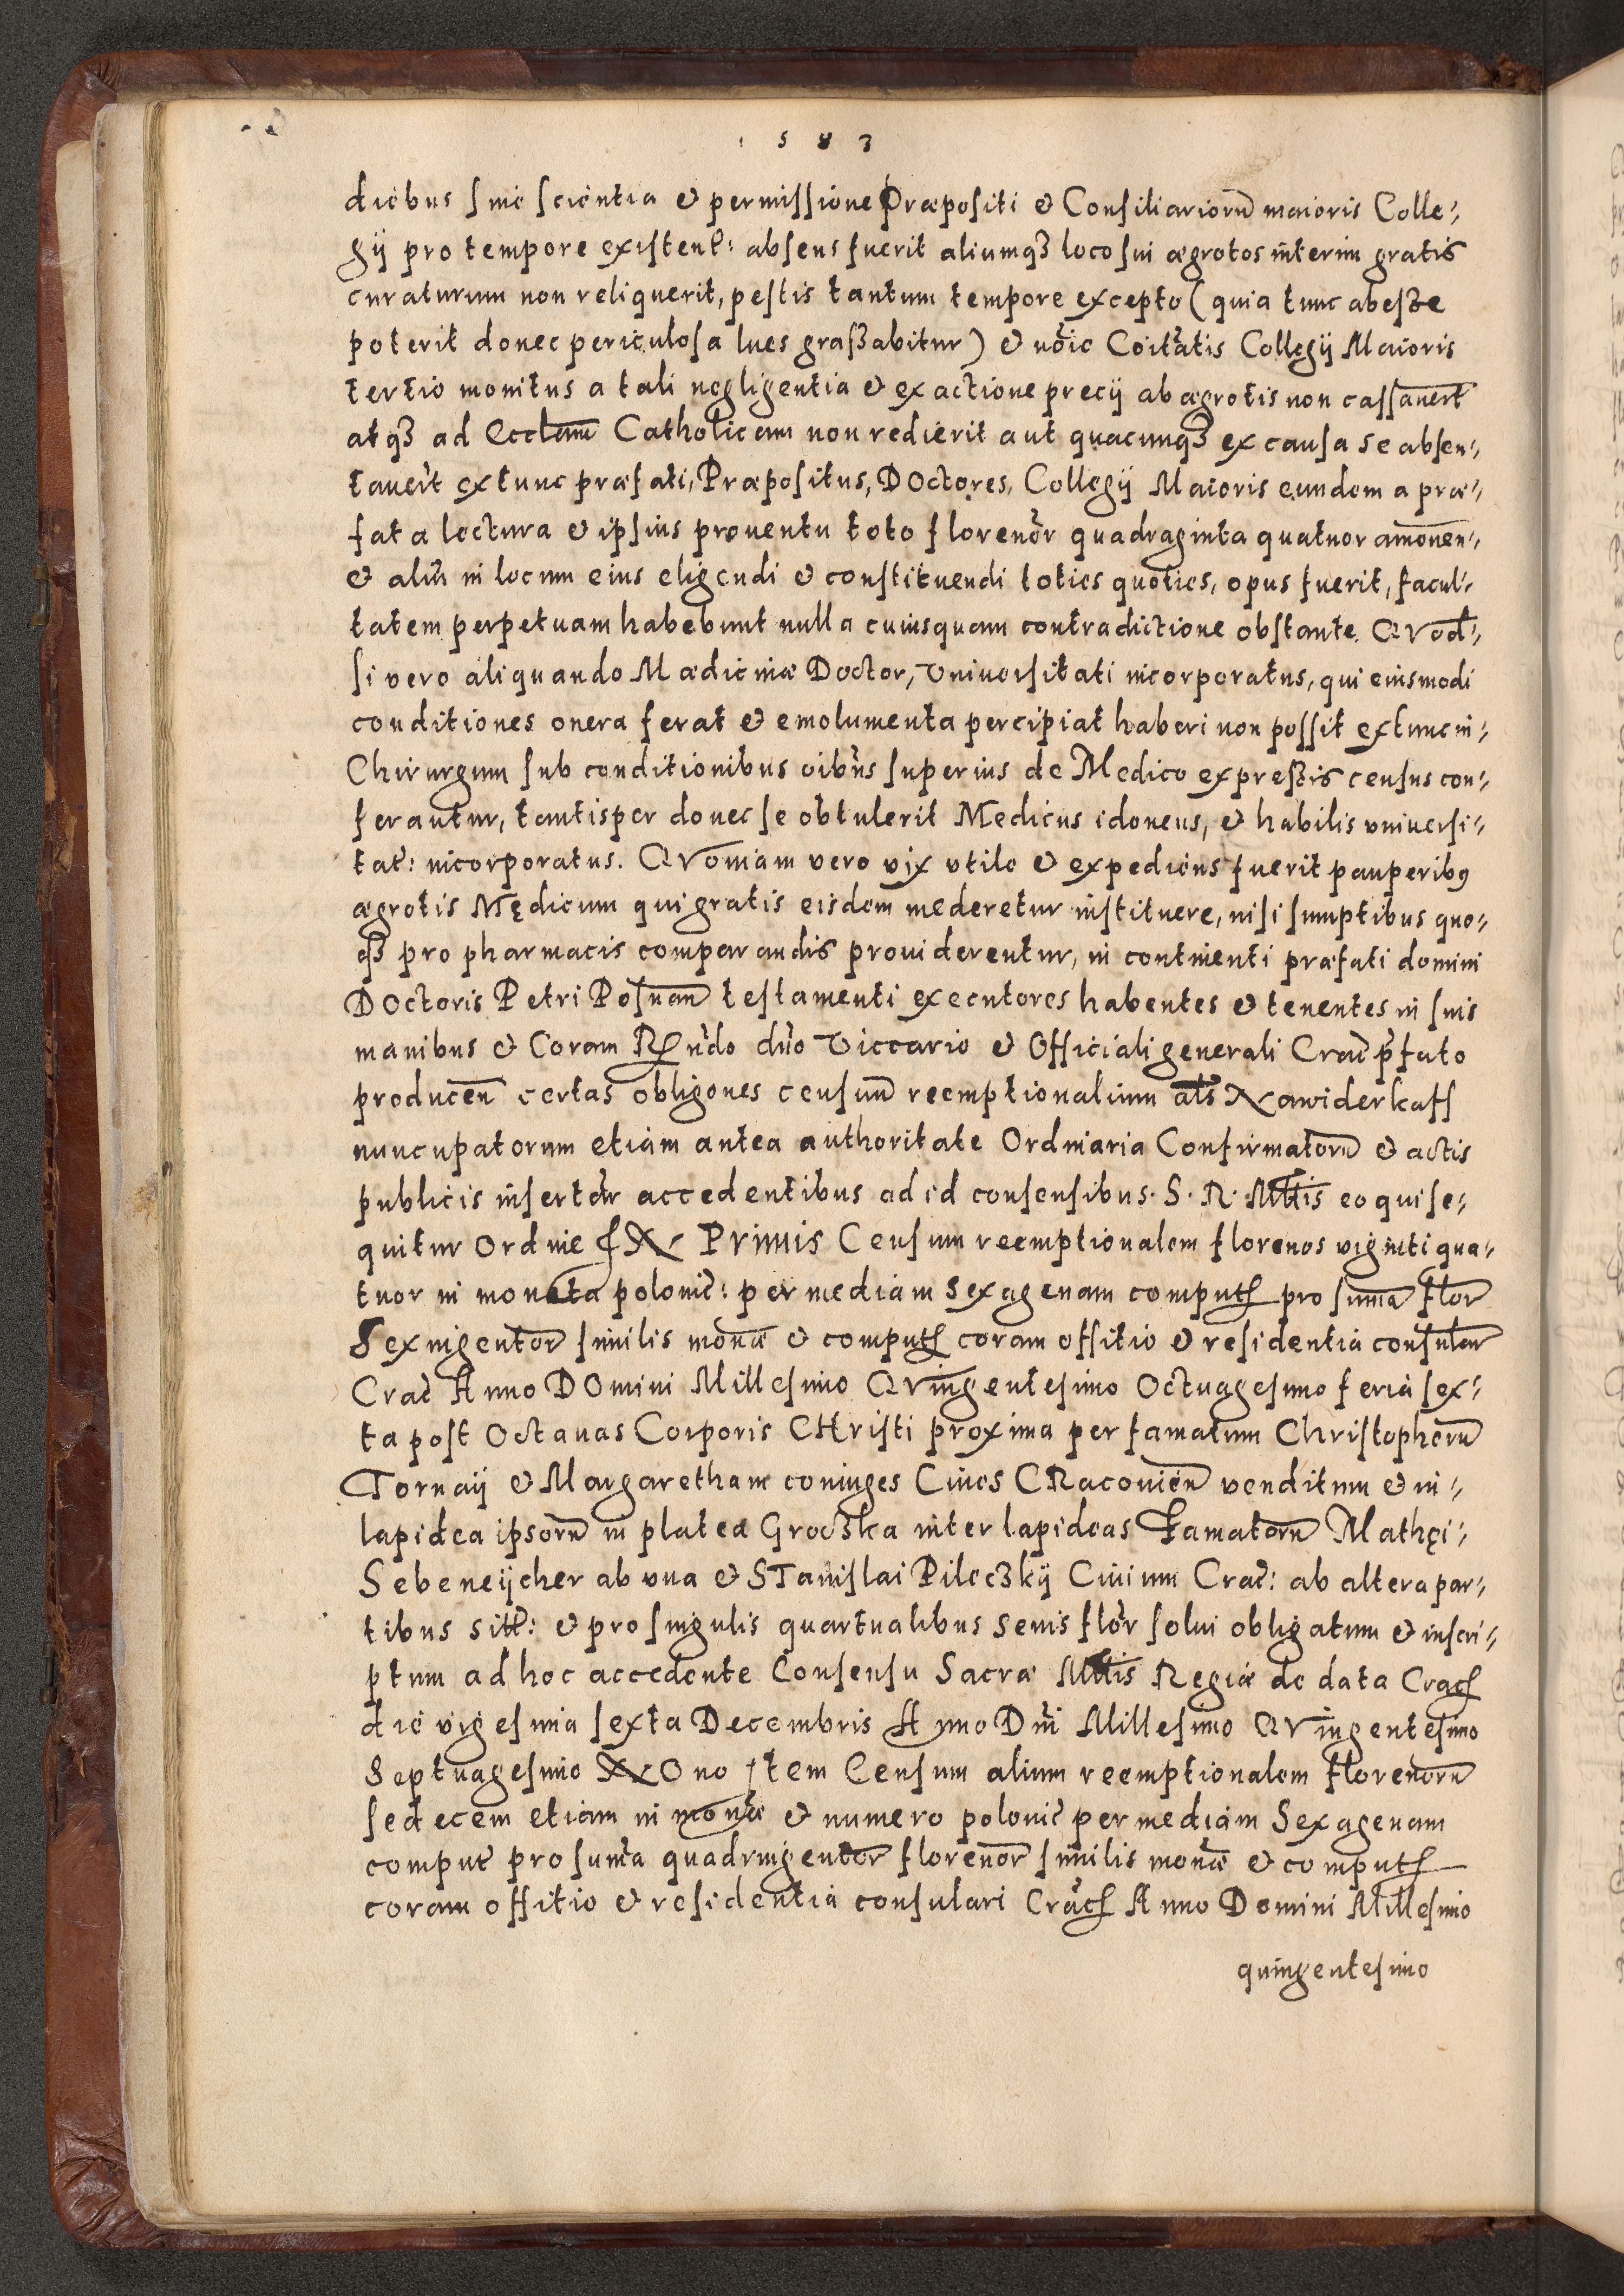 1 5 8 3
diebus sine scientia & permissione Præpositi & Consiliariorũ maioris Colle⸗
gij pro tempore existent: absens fuerit aliumqȝ loco sui ægrotos interim gratis
curaturum non reliquerit, pestis tantum tempore excepto (quia tunc abesse
poterit donec periculosa lues graßabitur) & noĩe Coĩtatis Collegij Maioris
tertio monitus a tali negligentia & exactione precij ab ægrotis non cassauerit
atqȝ ad Eccl̃am Catholicam non redierit aut quacunqȝ ex causa se absen⸗
tauerit extunc præfati, Præpositus, DOctores, Collegij Maioris eundem a præ⸗
fata lectura & ipsius prouentu toto florenor̃ quadraginta quatuor amouen⸗
& aliũ in locum eius eligendi & constituendi toties quoties, opus fuerit, facul⸗
tatem perpetuam habebunt nulla cuiusquam contradictione obstante. QVod⸗
si vero aliquando Mædicinæ Doctor, Vniuersitati incorporatus, qui eiusmodi
conditiones onera ferat & emolumenta percipiat haberi non possit extunc in⸗
Chirurgum sub conditionibus oĩbus superius de Medico expreßis census con⸗
ferantur, tantisper donec se obtulerit Medicus idoneus, & habilis vniuersi⸗
tat: incorporatus. QVoniam vero vix vtile & expediens fuerit pauperibꝰ
ægrotis Mędicum qui gratis eisdem mederetur instituere, nisi sumptibus quo⸗
qȝ pro pharmacis comparandis prouiderentur, in continenti præfati domini
DOctoris Petri Posnan̄ testamenti executores habentes & tenentes in suis
manibus & Coram Rñdo dño Viccario & Officiali generali Crac̃ p̃fato
producen̄ certas obligones censuũ reemptionalium al̃s Nawiderkaff
nuncupatorum etiam antea authoritate Ordinaria Confirmatorũ & actis
publicis insertor̃ accedentibus ad id consensibus. S. R. M̃ttis eo qui se⸗
quitur Ordine IN Primis Censum reemptionalem florenos viginti qua⸗
tuor in moneta polonic̃: per mediam sexagenam comput̃ pro sum̄a flor̃
Sexingentor̃ similis mon̄æ & comput̃ coram offitio & residentia consular̃
Crac̃ Anno DOmini Millesimo QVingentesimo Octuagesimo feria sex⸗
ta post Octauas Corporis CHristi proxima per famatum Christophorũ
Tornaij & Margaretham coniuges Ciues CRacouien̄ venditum & in⸗
lapidea ipsorũ in platea Grodzka inter lapideas Famatorũ Mathęi⸗
Sebeneijcher ab vna & STanislai Pileczkij Ciuium Crac̃: ab altera par⸗
tibus sitt̃: & pro singulis quartualibus senis flor̃ solui obligatum & inscri⸗
ptum ad hoc accedente Consensu Sacræ M̃ttis Regiæ de data Crac̃
die vigesima sexta Decembris Anno Dñi Millesimo QVingentesimo
Septuagesimo NOno Item Censum alium reemptionalem florenorũ
sedecem etiam in mon̄æ & numero polonic̃ per mediam Sexagenam
comput̃ pro sum̄a quadringentor̃ florenor̃ similis mon̄æ & comput̃
coram offitio & residentia consulari Crac̃ Anno Domini Millesimo
quingentesimo